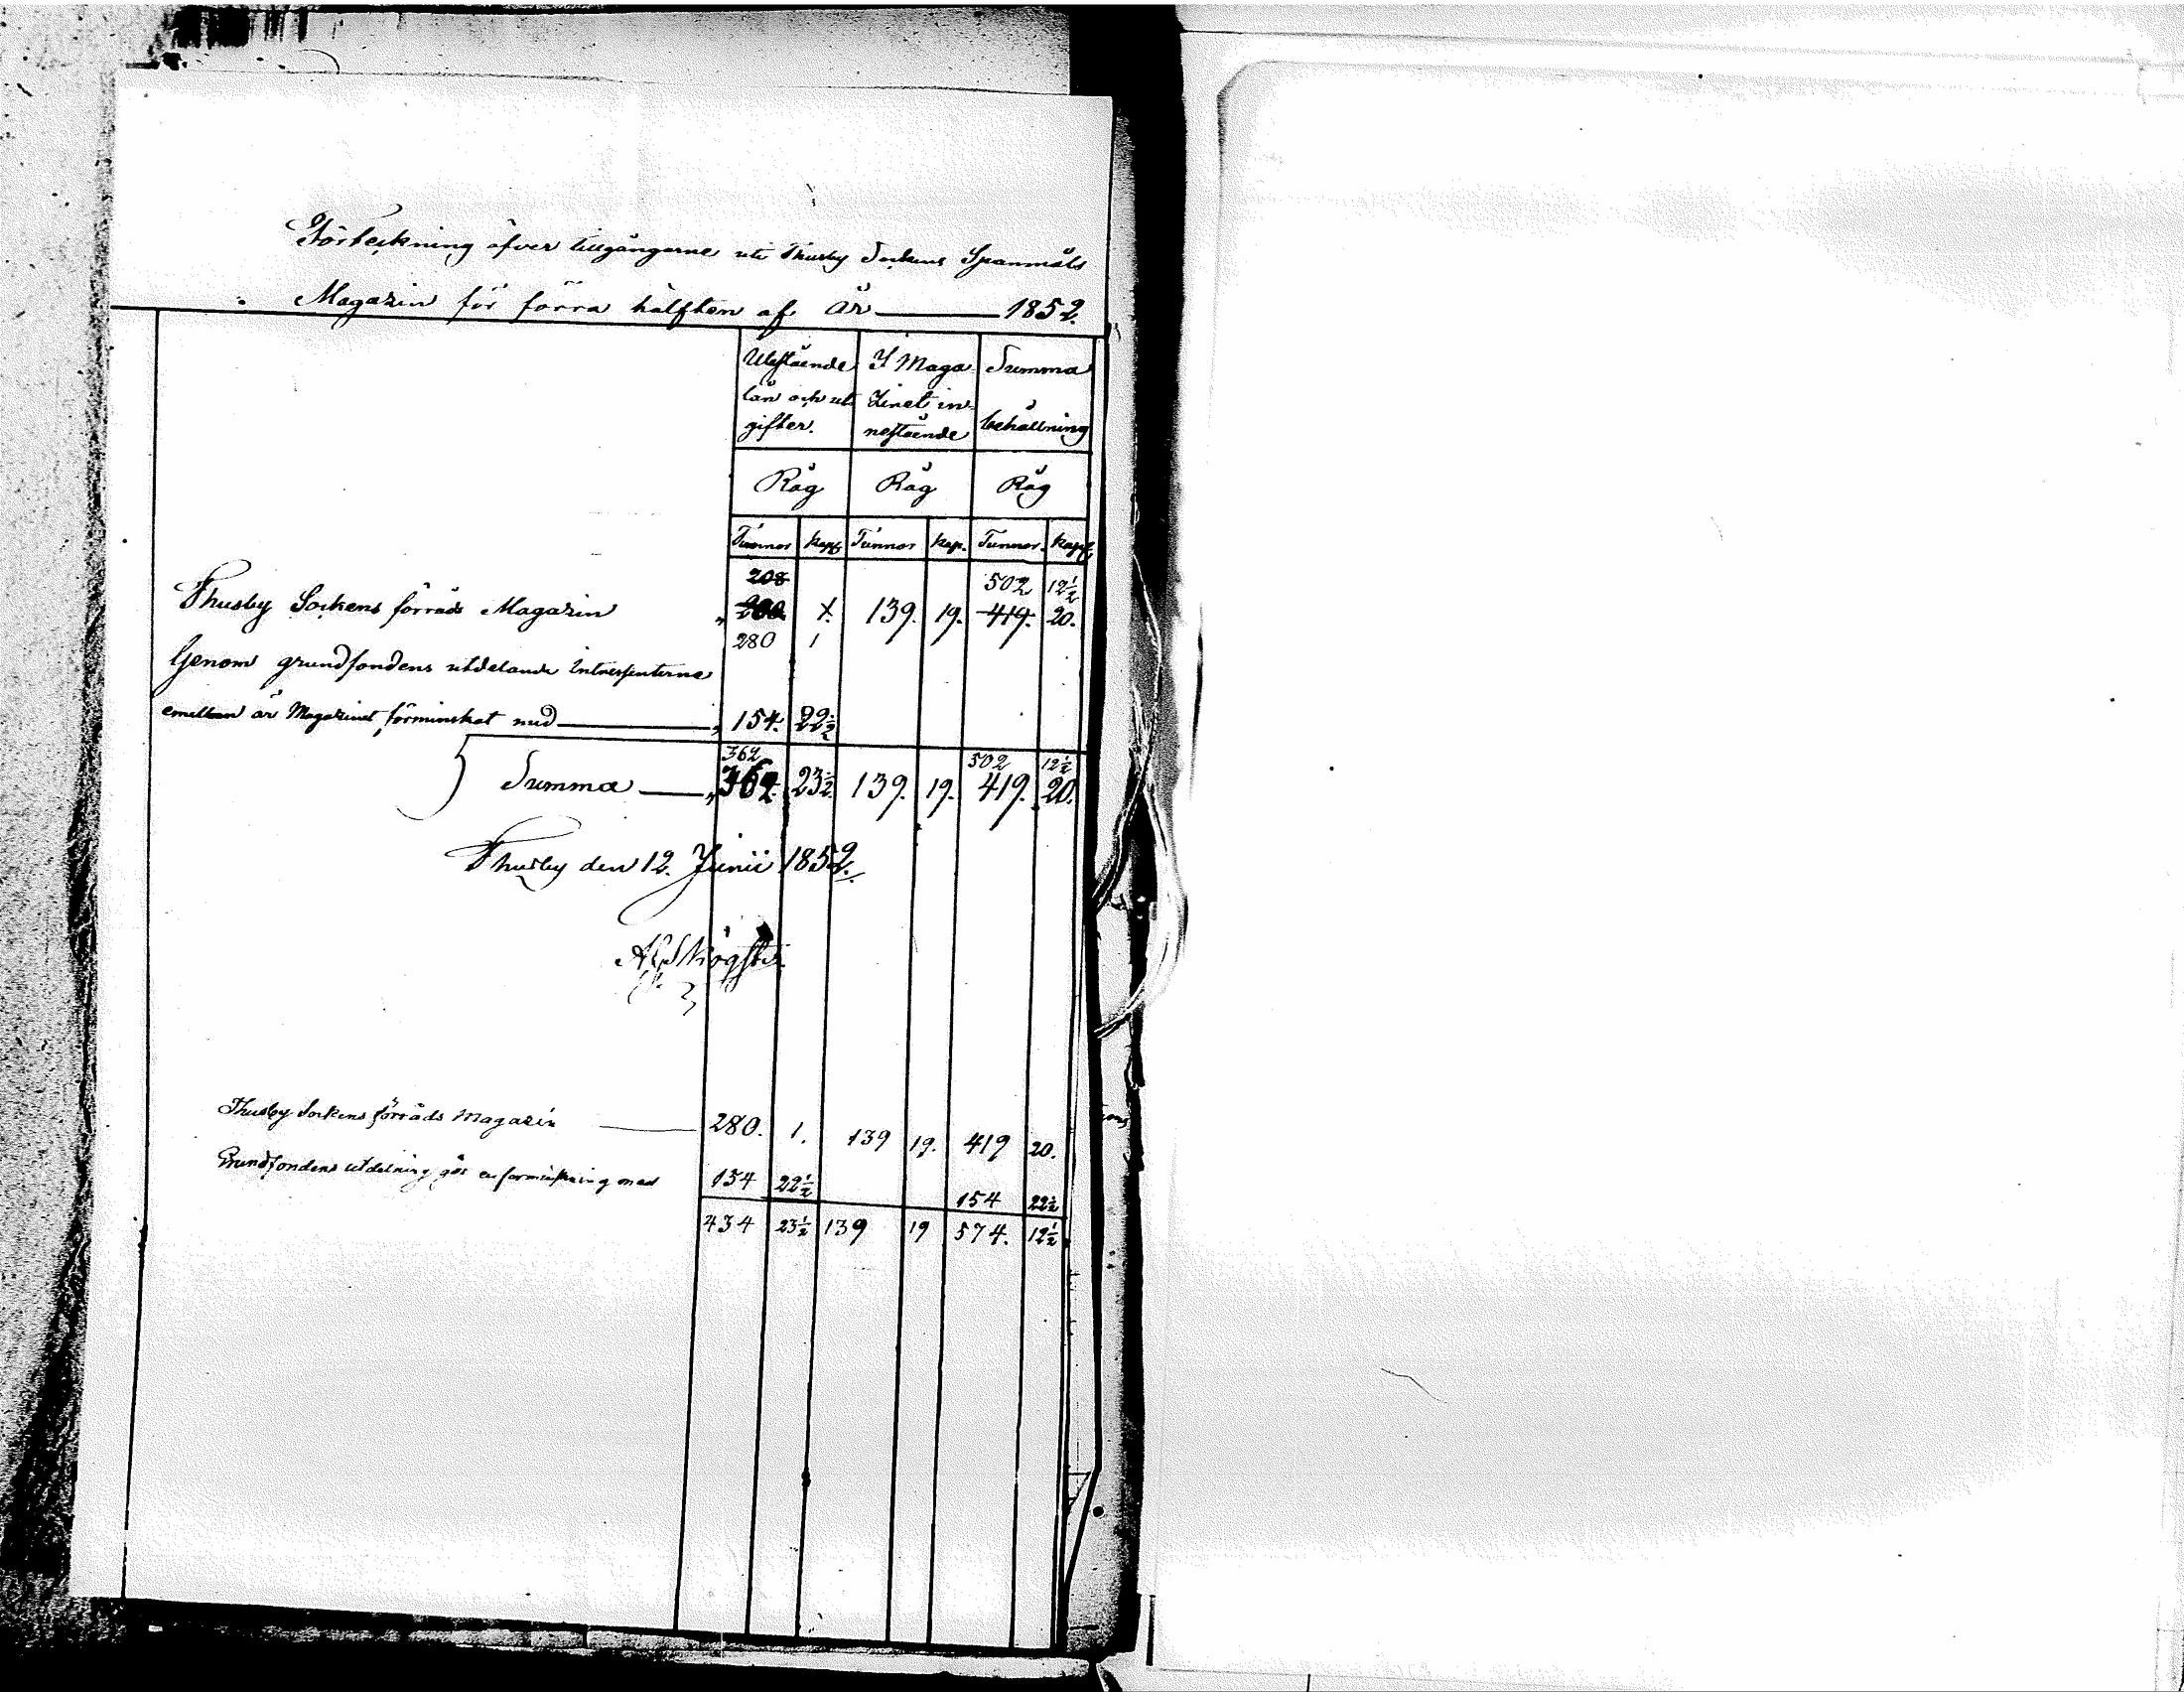 Förteckning öfver tillgångarne uti Thusby Sockens Spanmåls
Magazin för förra hälften af år — 1852.
Utestående I Maga Summa
lån och ut Zinet in-
gifter. nestående behållning
Råg Råg Råg
Tunnor Kapp Tunnor Kap. Tunnor. Kapp
208 502 12½
Thusby Sockens förråds Magazin " 280. 1. 139. 19. 419. 20.
280 1
Genom grundfondens utdelande Intressenterne
emellan är Magazinet förminskat med — " 154. 22½
362 502 12½
Summa — " 362. 23½ 139. 19. 419. 20.
Thusby den 12. Junii 1852.
Thusby Sockens förråds Magazin — 280. 1. 139 19. 419 20.
Grundfondens utdelning gör en förminskning med 154 22½ 154 22½
434 23½ 139 19 574. 12½